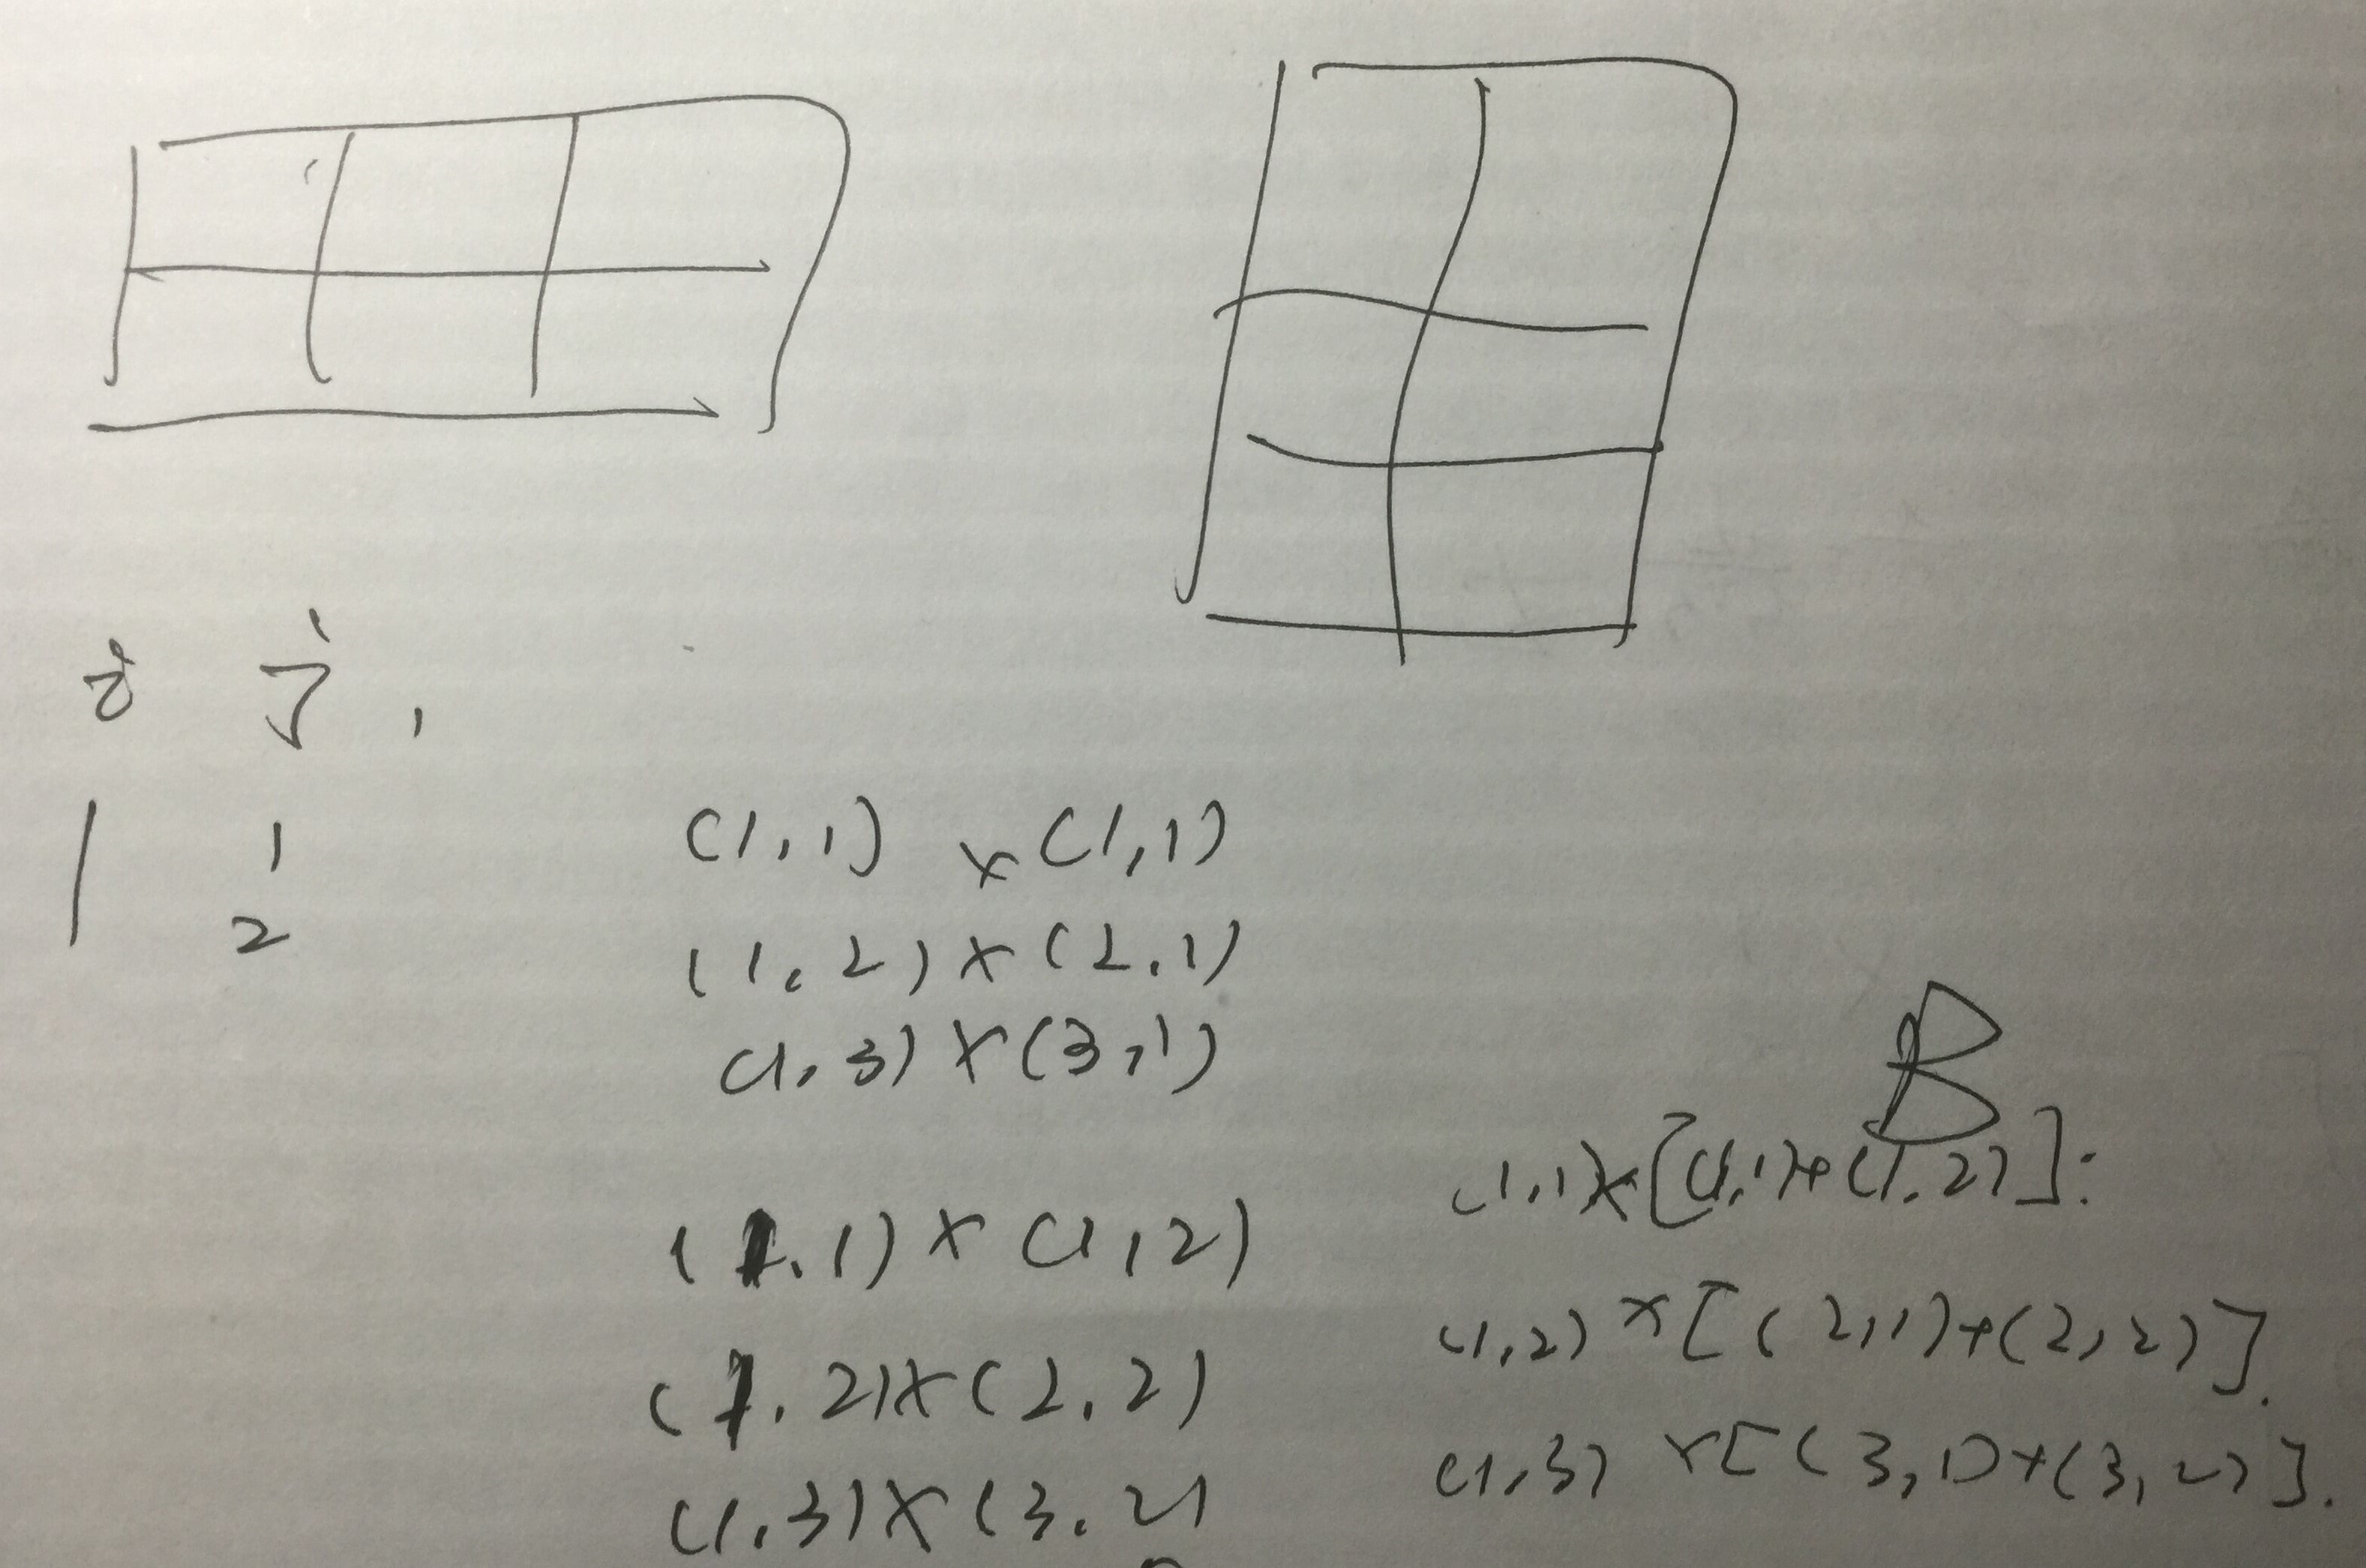 i j
1 1
2
(1,1) × (1,1)
(1,2) × (2,1)
(1,3) × (3,1)
(1,1) × (1,2)
(1,2) × (2,2)
(1,3) × (3,2)
B
(1,1) × [(1,1) + (1,2)]:
(1,2) × [(2,1) + (2,2)].
(1,3) × [(3,1) + (3,2)].